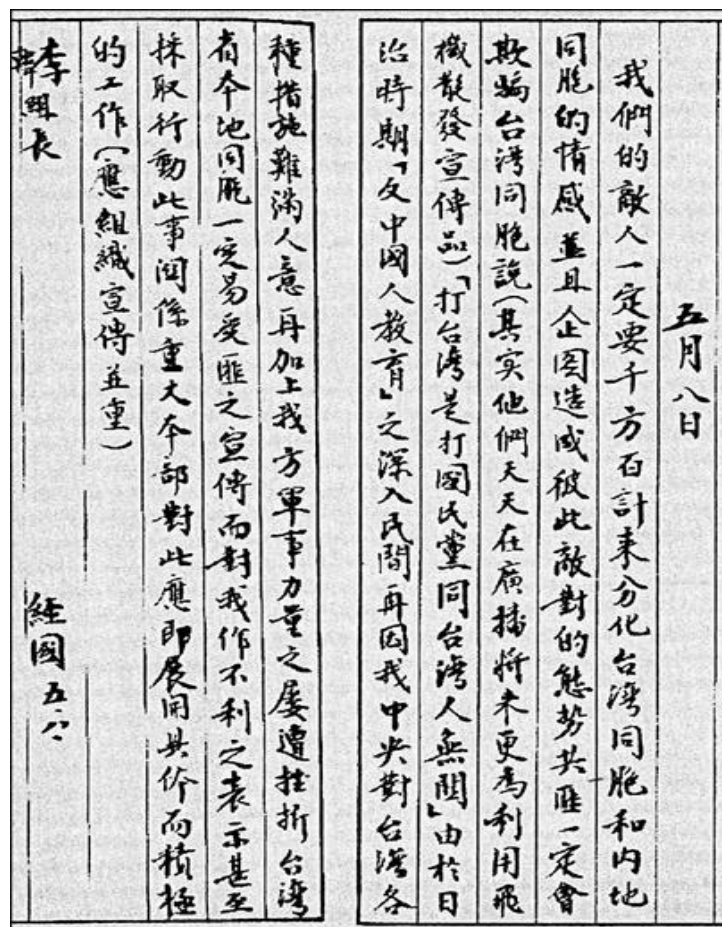 五月八日
我們的敵人一定要千方百計來分化台灣同胞和內地
同胞的情感並且企图造成彼此敵對的態势共匪一定會
欺騙台湾同胞說(其实他們天天在廣播將來更為利用飛
機散發宣傳品)「打台湾是打國民黨同台湾人無關」由於日
治時期「反中國人教育」之深入民間再因我中央對台灣各
種措施難滿人意再加上我方軍事力量之屢遭挫折台湾
省本地同胞一定易受匪之宣傳而對我作不利之表示甚至
採取行動此事関係重大本部對此應即展開具体而積極
的工作(應組織宣傳並重)
李組長
經國 五.八